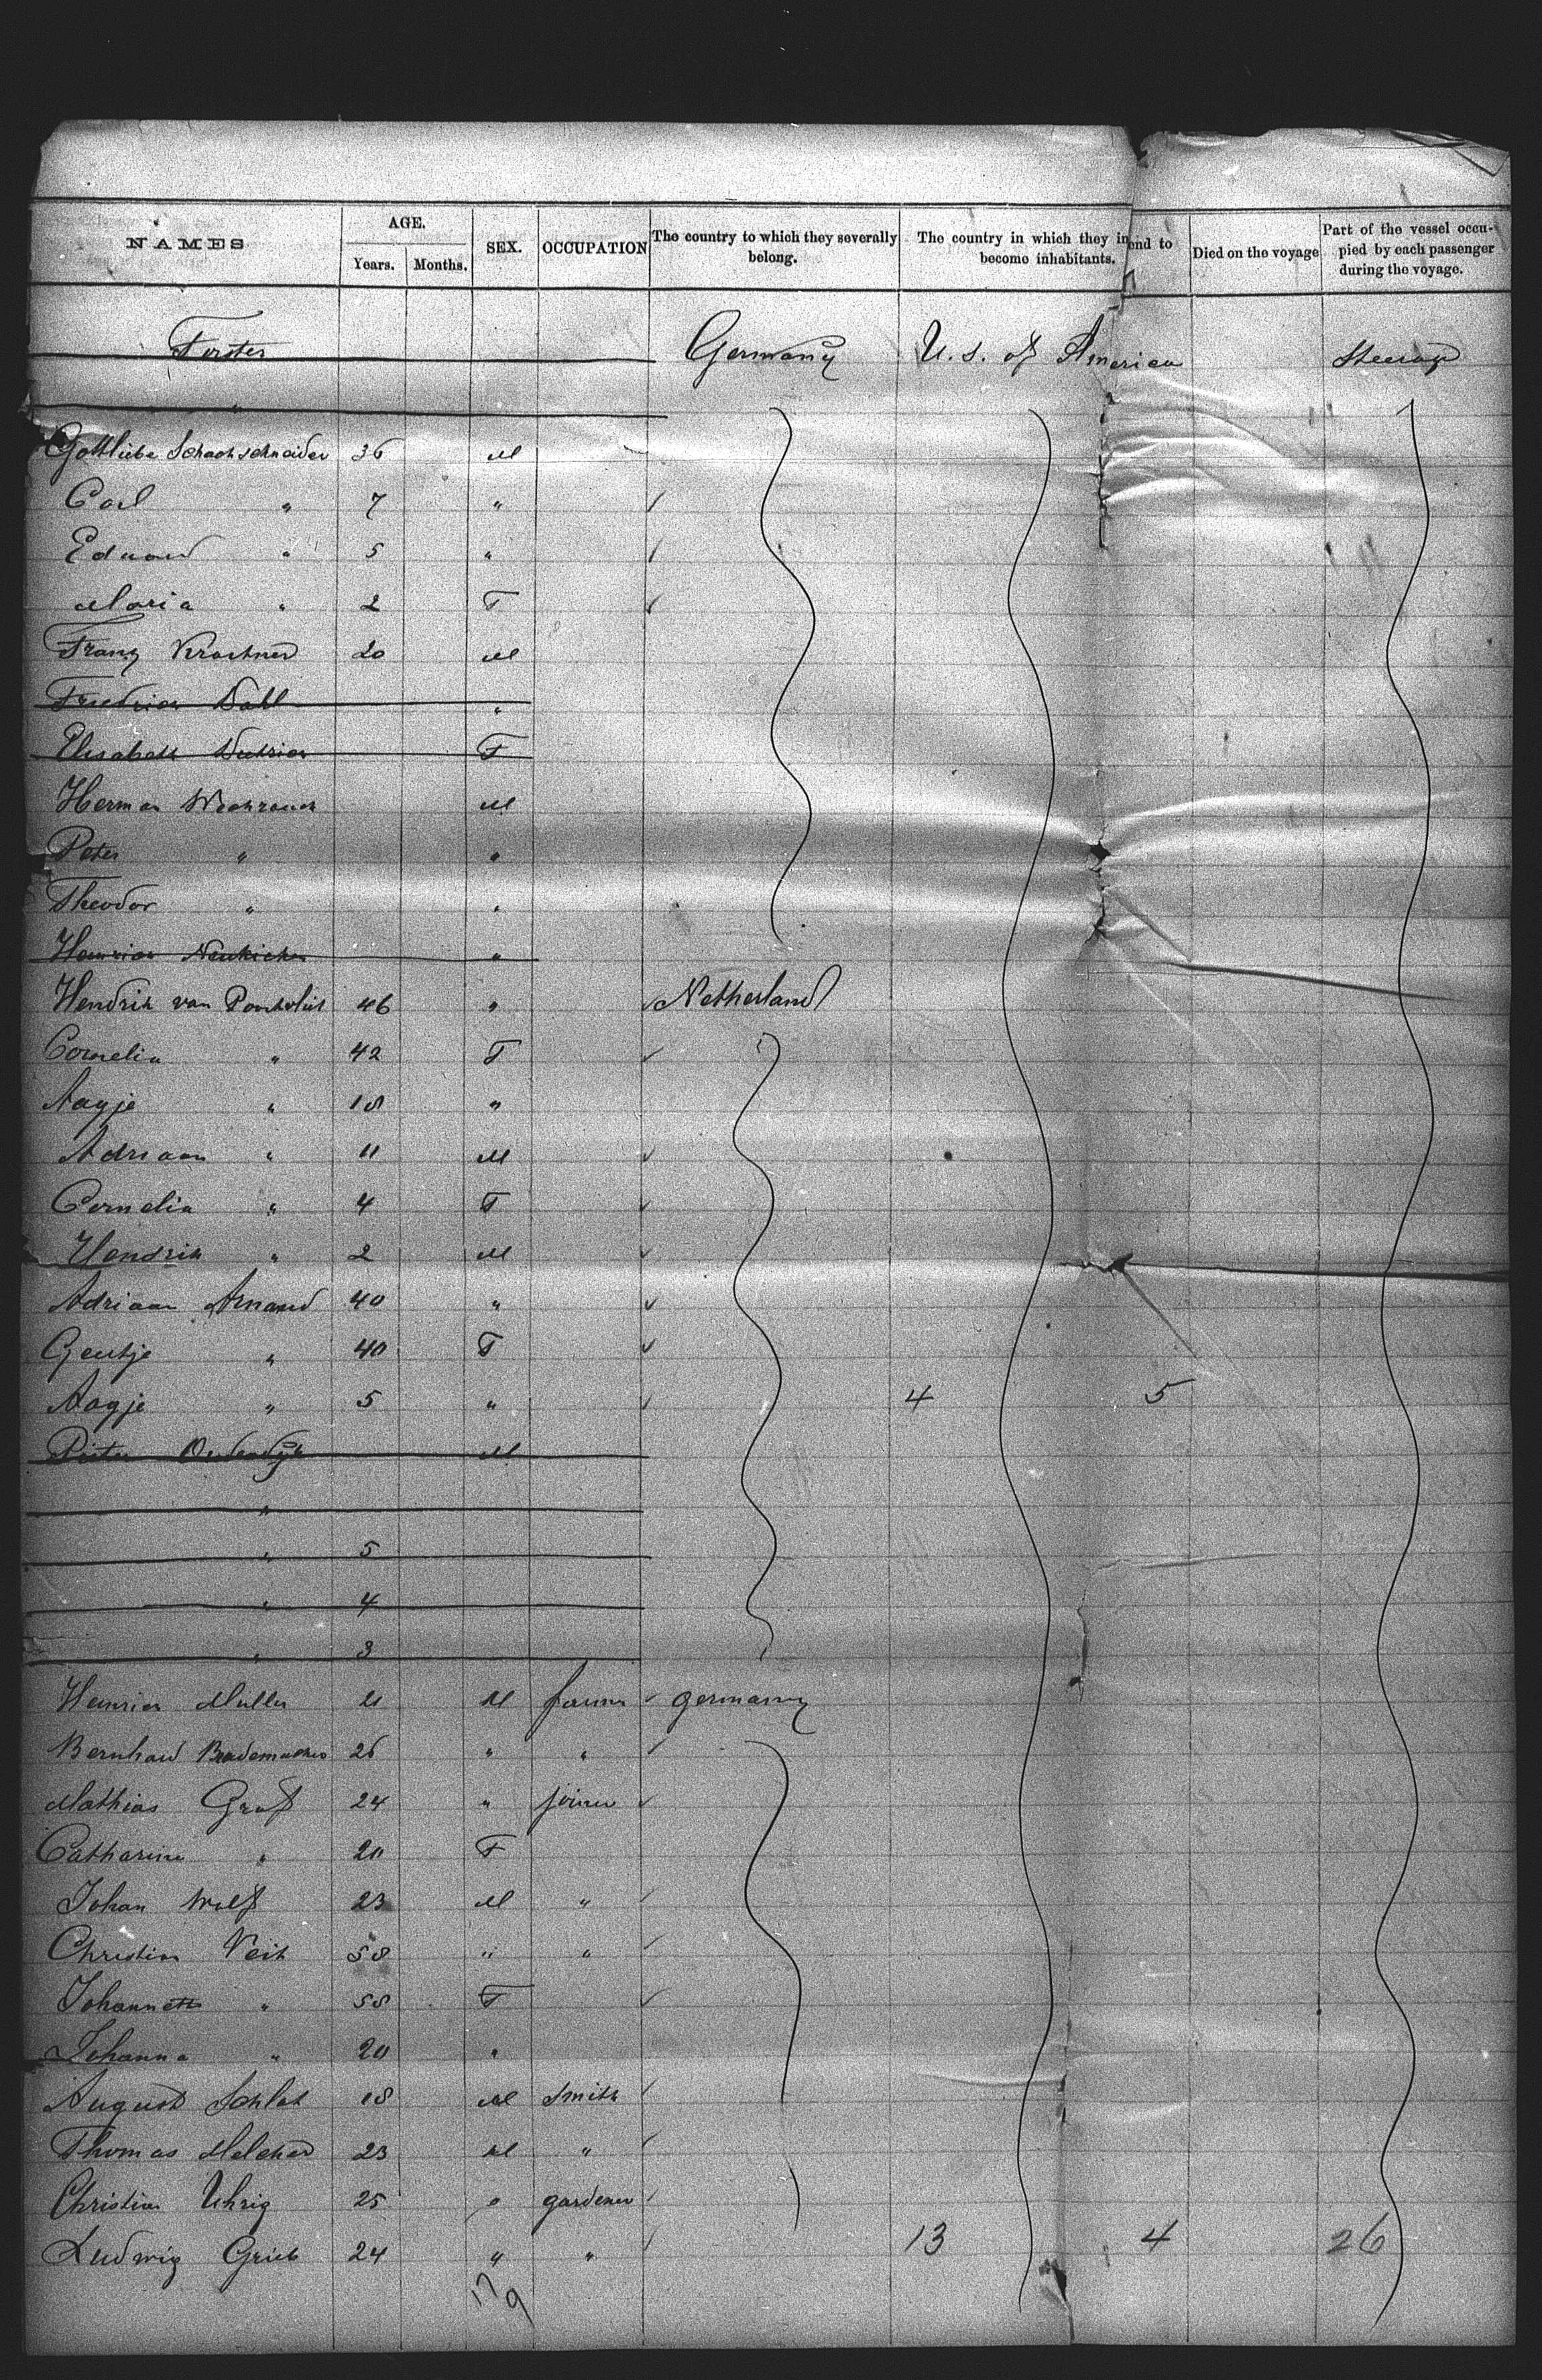 NAMES AGE. SEX. OCCUPATION The country to which they severally belong. The country in which they intend to become inhabitants. Died on the voyage Part of the vessel occupied by each passenger during the voyage.
Years. Months.
Forster Germany U.S. of America Steerage
"
Gottliebe Schachschneider 36 M
Carl " 7 "
Eduard " 5 "
Maria " 2 F
Franz 20 M
Friedrich Dahl "
Elisabeth F
Herman M
Peter " "
Theodor " "
Heinrich "
Hendrik van 46 " Netherland
Cornelia " 42 F
Aagje " 18 "
Adriaan " 11 M
Cornelia " 4 F
Hendrik " 2 M
Adriaan Arnaud 40 "
Geertje " 40 F
Aagje " 5 " 4 5
Pieter M
"
" 5
" 4
" 3
Heinrich Muller M farmer Germany
Bernhard 26 " "
Mathias Graf 24 " joiner
Catharine " 20 F
Johan Wolf 23 M "
Christian Veit 58 " "
Johannette " 58 F
Johanna " 20 "
August 18 M Smith
Thomas Melcher 23 M "
Christian Uhrig 25 " gardener
Ludwig Grieb 24 " " 13 4 26
17
9